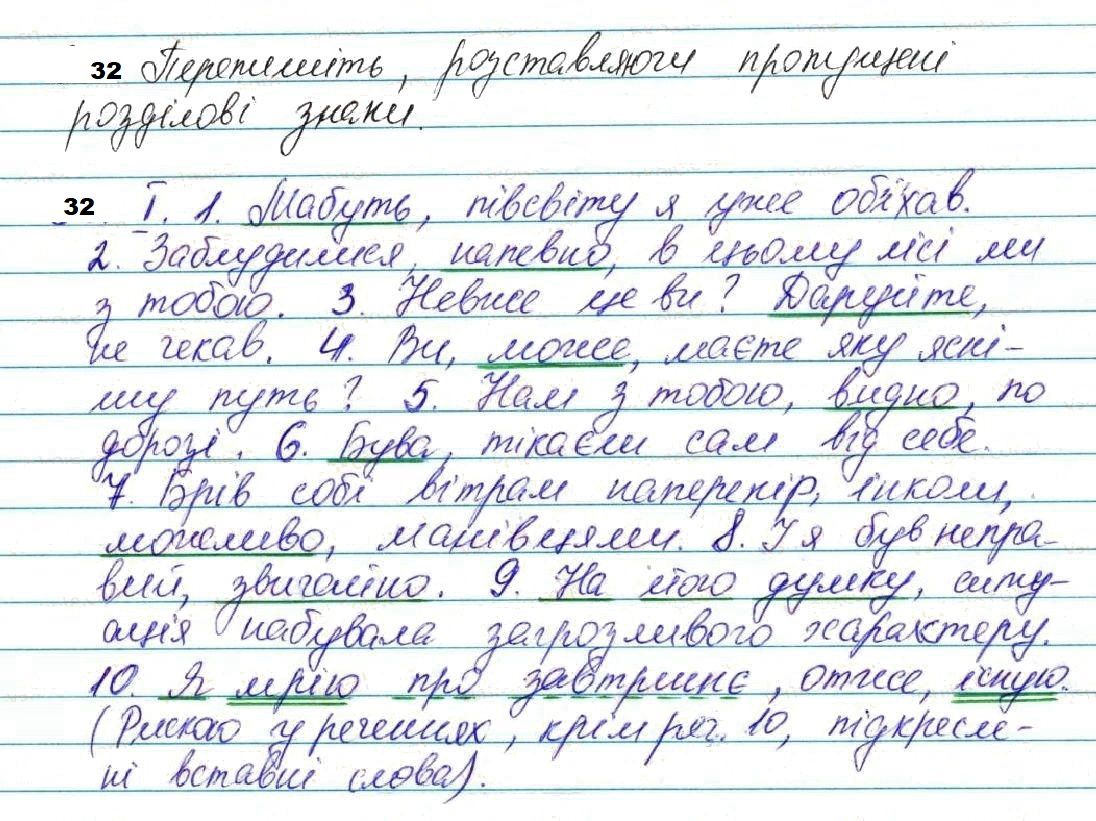 32 Перепишіть, розставляючи пропущені
розділові знаки.
32 І. 1. Мабуть, півсвіту я уже об'їхав.
2. Заблудилися, напевно, в цьому лісі ми
з тобою. 3. Невже це ви? Даруйте,
не чекав. 4. Ви, може, маєте яку ясні-
шу путь? 5. Нам з тобою, видно, по
дорозі. 6. Бува, тікаєш сам від себе.
7. Брів собі вітрам наперекір, інколи,
можливо, манівцями. 8. І я був непра-
вий, звичайно. 9. На його думку, ситу-
ація набувала загрозливого характеру.
10. Я мрію про завтрашнє, отже, існую.
(Рискою у реченнях, крім реч. 10, підкресле-
ні вставні слова).